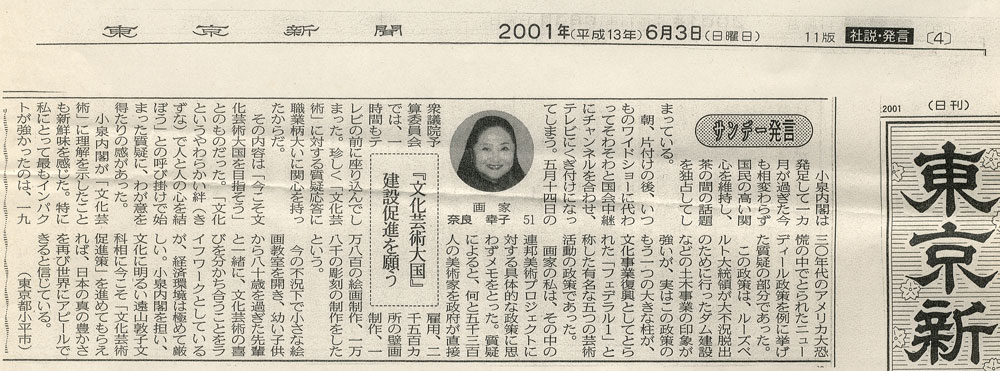 東京新聞 2001年(平成13年)6月3日(日曜日) 11版 社説・発言 〔4〕
サンデー発言
『文化芸術大国』
建設促進を願う
画家
奈良 幸子 51
小泉内閣は
発足して一カ
月が過ぎた今
も相変わらず
国民の高い関
心を維持し、
茶の間の話題
を独占してし
まっている。
朝、片付けの後、いつ
ものワイドショーに代わ
ってそわそわと国会中継
にチャンネルを合わせ、
テレビにくぎ付けになっ
てしまう。五月十四日の
衆議院予
算委員会
では、一
時間もテ
レビの前に座り込んでし
まった。珍しく「文化芸
術」に対する質疑応答に
職業柄大いに関心を持っ
たからだ。
その内容は「今こそ文
化芸術大国を目指そう」
とのものだった。「文化
というやわらかい絆（き
ずな）で人と人の心を結
ぼう」との呼び掛けで始
まった質疑に、わが意を
得たりの感があった。
小泉内閣が「文化芸
術」に理解を示したこと
も新鮮味を感じた。特に
私にとって最もインパク
トが強かったのは、一九
三〇年代のアメリカ大恐
慌の中でとられたニュー
ディール政策を例に挙げ
た質疑の部分であった。
この政策は、ルーズベ
ルト大統領が大不況脱出
のために行ったダム建設
などの土木事業の印象が
強いが、実はこの政策の
もう一つの大きな柱が、
文化事業復興としてとら
れた「フェデラル１」と
称した有名な五つの芸術
活動の政策であった。
画家の私は、その中の
連邦美術プロジェクトに
対する具体的な政策に思
わずメモをとった。質疑
によると、何と五千三百
人の美術家を政府が直接
雇用、二
千五百カ
所の壁画
制作、一
万八百の絵画制作、一万
八千の彫刻の制作をした
という。
今の不況下で小さな絵
画教室を開き、幼い子供
から八十歳を過ぎた先輩
と一緒に、文化芸術の喜
びを分かち合うことをラ
イフワークとしている
が、経済環境は極めて厳
しい。小泉内閣を担い、
文化に明るい遠山敦子文
科相に今こそ「文化芸術
促進策」を進めてもらえ
れば、日本の真の豊かさ
を再び世界にアピールで
きると信じている。
（東京都小平市）
2001 （日刊）
東京新